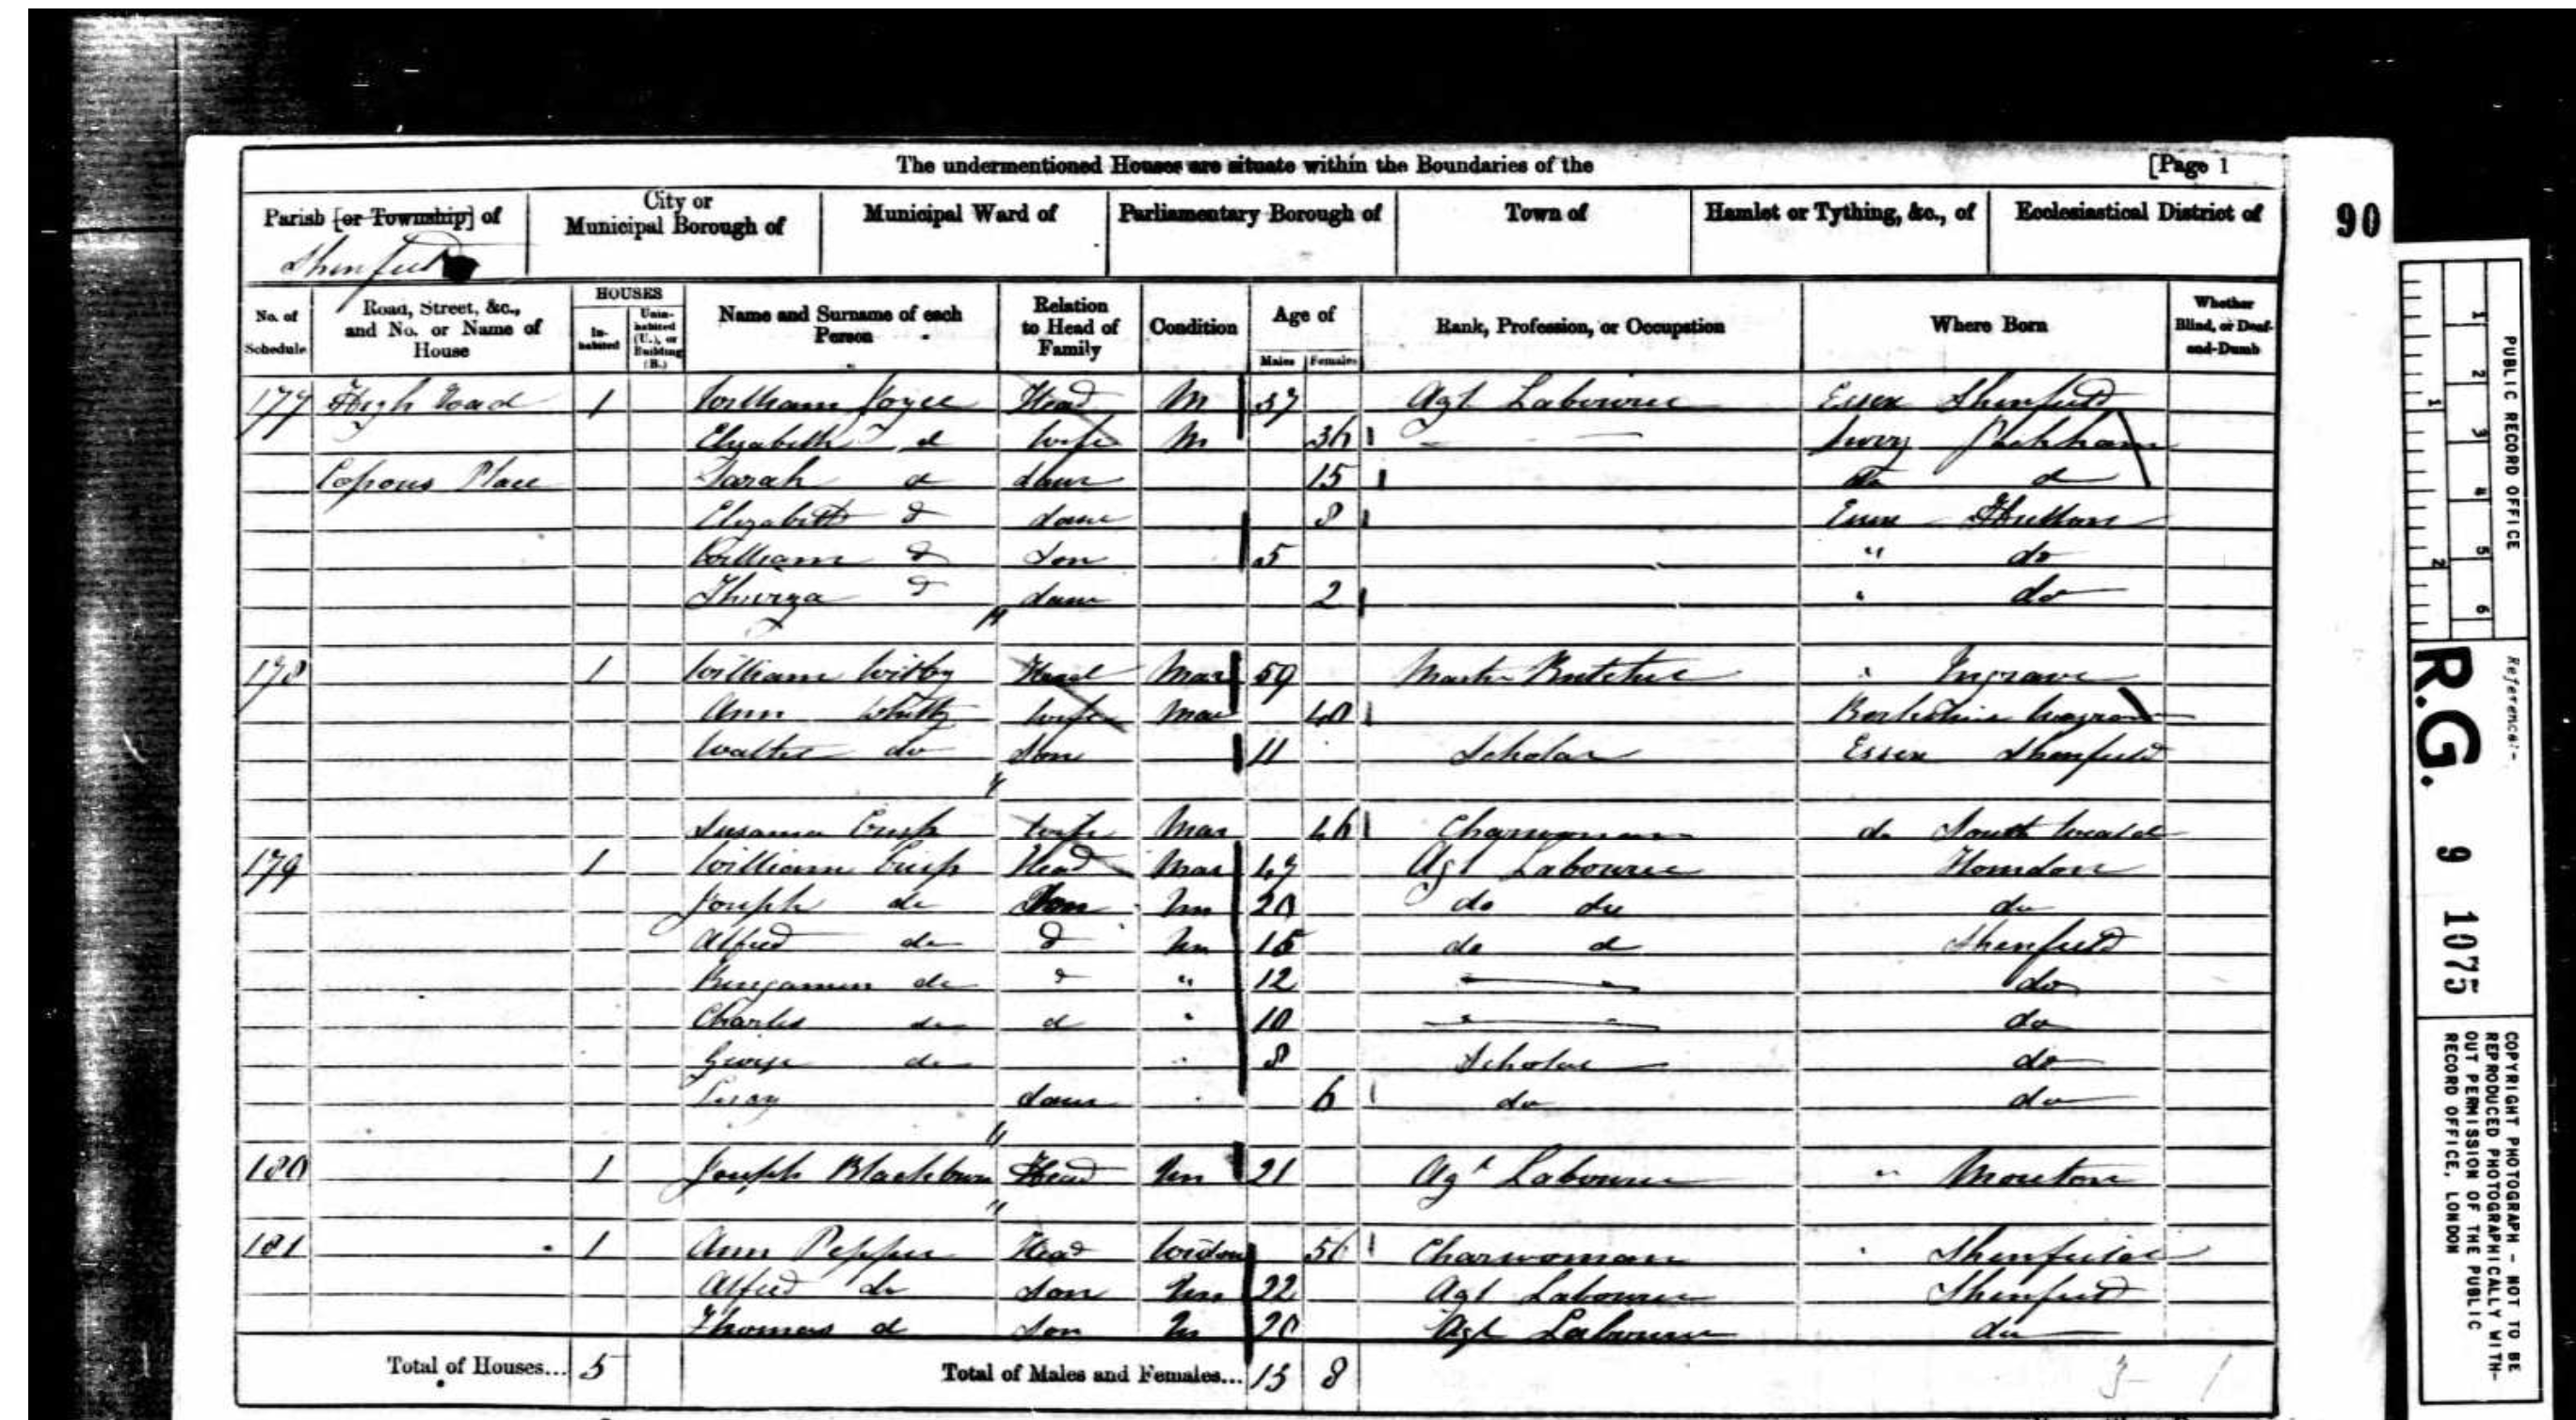 The undermentioned Houses are situate within the Boundaries of the [Page 1
Parish [or Township] of City or Municipal Borough of Municipal Ward of Parliamentary Borough of Town of Hamlet or Tything, &c., of Ecclesiastical District of
Shenfield
90
No. of Schedule Road, Street, &c., and No. or Name of House HOUSES In-habited Unin-habited (U.), or Building (B.) Name and Surname of each Person Relation to Head of Family Condition Age of Males Females Rank, Profession, or Occupation Where Born Whether Blind, or Deaf-and-Dumb
177 High Road 1 William Joyce Head M 37 Agl Labourer Essex Shenfield
Elizabeth d Wife M 36 Surry Peckham
Place Sarah d daur 15 Do d
Elizabeth d daur 8 Essex Hutton
William d Son 5 " do
Thirza d daur 2 " do
178 1 William Witby Head Mar 59 Master Butcher " Ingrave
Ann Whitby Wife Mar 40 Berkshire
Walter do Son 11 Scholar Essex Shenfield
Susanna Crisp Wife Mar 46 Charwoman do South Weald
179 1 William Crisp Head Mar 47 Agl Labourer Horndon
Joseph do Son Un 20 do do do
Alfred do d Un 15 do d Shenfield
Bengamin do d " 12 do
Charles do d " 10 do
George do " 8 Scholar do
daur 6 do do
180 1 Joseph Blackburn Head Un 21 Agl Labourer "
181 1 Ann Pepper Head Widow 56 Charwoman " Shenfield
Alfred do Son Un 22 Agl Labourer Shenfield
Thomas d Son Un 20 Agl Labourer do
Total of Houses... 5 Total of Males and Females... 13 8
3 1
PUBLIC RECORD OFFICE
1 2 3 4 5 6
1 2
Reference:-
R.G. 9 1075
COPYRIGHT PHOTOGRAPH - NOT TO BE
REPRODUCED PHOTOGRAPHICALLY WITH-
OUT PERMISSION OF THE PUBLIC
RECORD OFFICE, LONDON